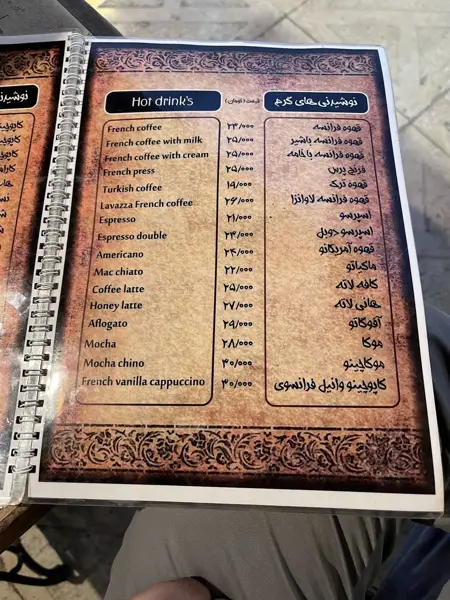 Hot drink's قیمت (تومان) نوشیدنی های گرم
French coffee ۲۳/۰۰۰ قهوه فرانسه
French coffee with milk ۲۵/۰۰۰ قهوه فرانسه باشیر
French coffee with cream ۲۵/۰۰۰ قهوه فرانسه باخامه
French press ۲۵/۰۰۰ فرنچ پرس
Turkish coffee ۱۹/۰۰۰ قهوه ترک
Lavazza French coffee ۲۶/۰۰۰ قهوه فرانسه لاوانزا
Espresso ۲۱/۰۰۰ اسپرسو
Espresso double ۲۳/۰۰۰ اسپرسو دوبل
Americano ۲۴/۰۰۰ قهوه آمریکانو
Mac chiato ۲۲/۰۰۰ ماکیاتو
Coffee latte ۲۵/۰۰۰ کافه لاته
Honey latte ۲۷/۰۰۰ هانی لاته
Aflogato ۲۹/۰۰۰ آفوگاتو
Mocha ۲۸/۰۰۰ موکا
Mocha chino ۳۰/۰۰۰ موکاچینو
French vanilla cappuccino ۳۰/۰۰۰ کاپوچینو وانیل فرانسوی